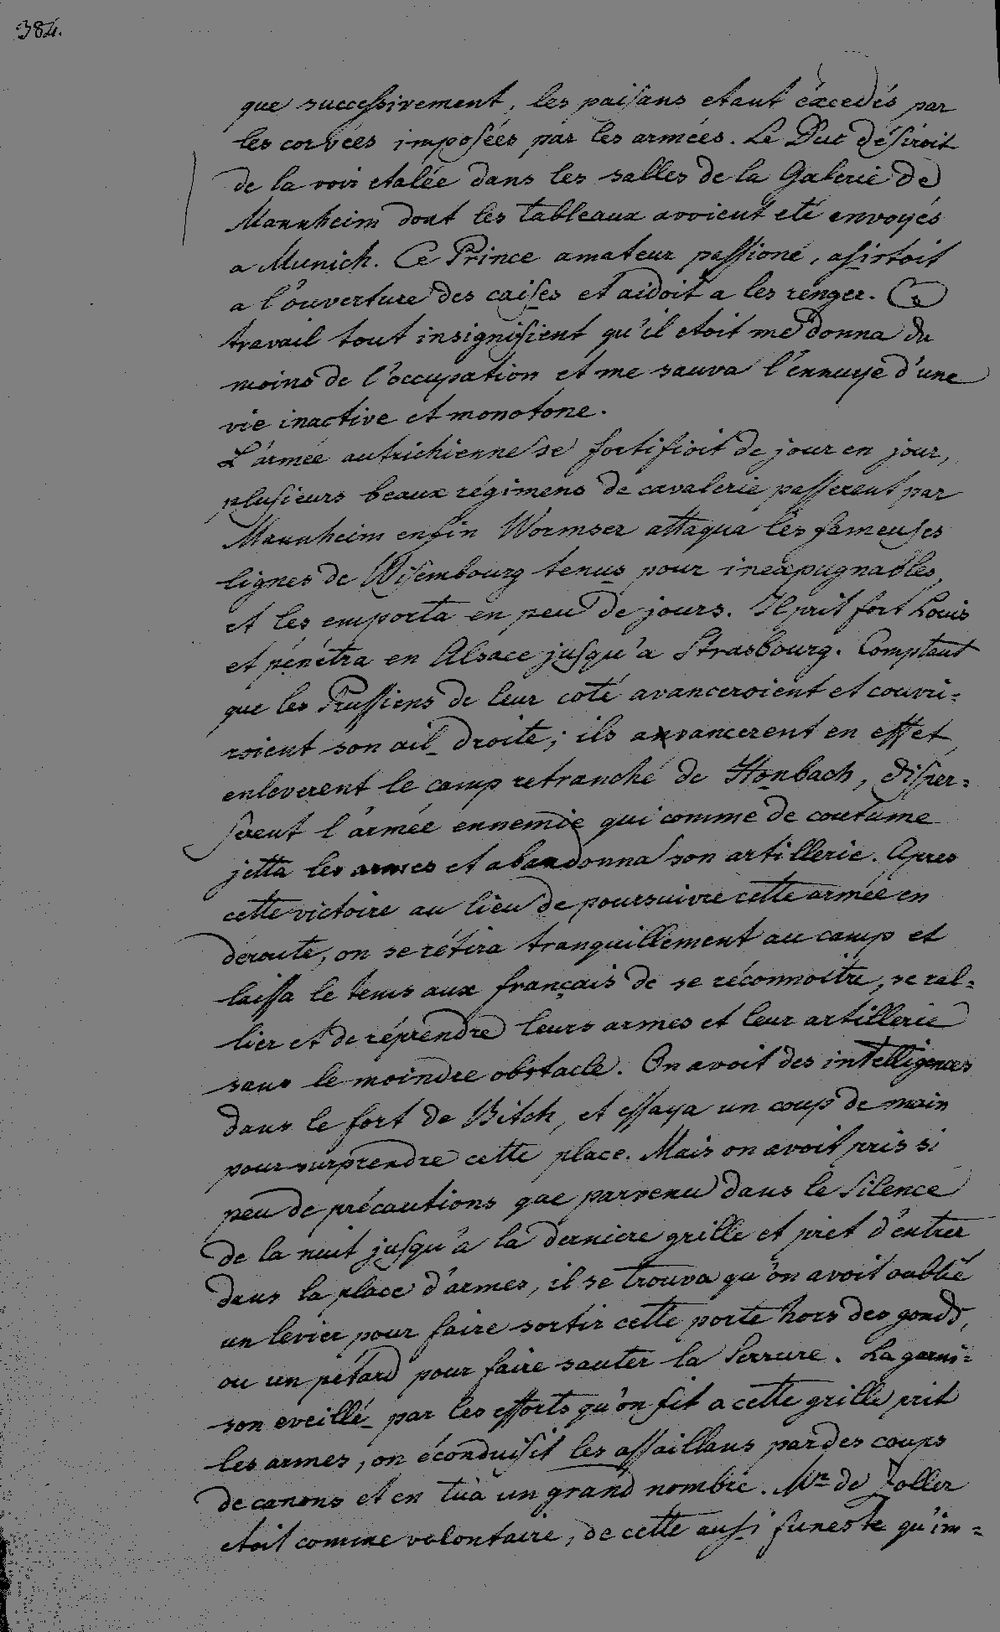 384.
que successivement, les paisans etant éxcedés par
les corvées imposées par les armées. Le Duc désiroit
de la voir etalée dans les salles de la Galerie de
Mannheim dont les tableaux avoient eté envoyés
a Munich. Ce Prince amateur passioné, asistoit
a l'ouverture des caises et aidoit a les renger. Ce
travail tout insignifient qu'il etoit me donna du
moins de l'occupation et me sauva l'ennuye d'une
vie inactive et monotone.
L'armée autrichienne se fortifioit de jour en jour,
plusieurs beaux régimens de cavalerie passerent par
Mannheim enfin Wormser attaqua les fameuses
lignes de Wisembourg tenus pour inexpugnables,
et les emporta en peu de jours. Il prit fort Louis
et pénétra en Alsace jusqu'a Strasbourg. Comptant
que les Prussiens de leur coté avanceroient et couvri=
roient son ail droite; ils avancerent en effet,
enleverent le camp retranché de Honbach, disper=
serent l'armée ennemie qui comme de coutume
jetta les armes et abandonna son artillerie. Apres
cette victoire au lieu de poursuivre cette armée en
deroute, on se rétira tranquillement au camp et
laissa le tems aux français de se réconnoitre, se ral=
lier et de réprendre leurs armes et leur artillerie
sans le moindre obstacle. On avoit des intelligences
dans le fort de Bitch, et essaya un coup de main
pour surprendre cette place. Mais on avoit pris si
peu de précautions que parvenu dans le silence
de la nuit jusqu'à la derniere grille et pret d'entrer
dans la place d'armes, il se trouva qu'on avoit oublié
un levier pour faire sortir cette porte hors des gonds,
ou un pétard pour faire sauter la serrure. La garni=
son eveillé par les efforts qu'on fit a cette grille prit
les armes, on éconduisit les assaillans par des coups
de canons et en tüa un grand nombre. Mr de Zoller
etoit comme volontaire, de cette aussi funeste qu'im=